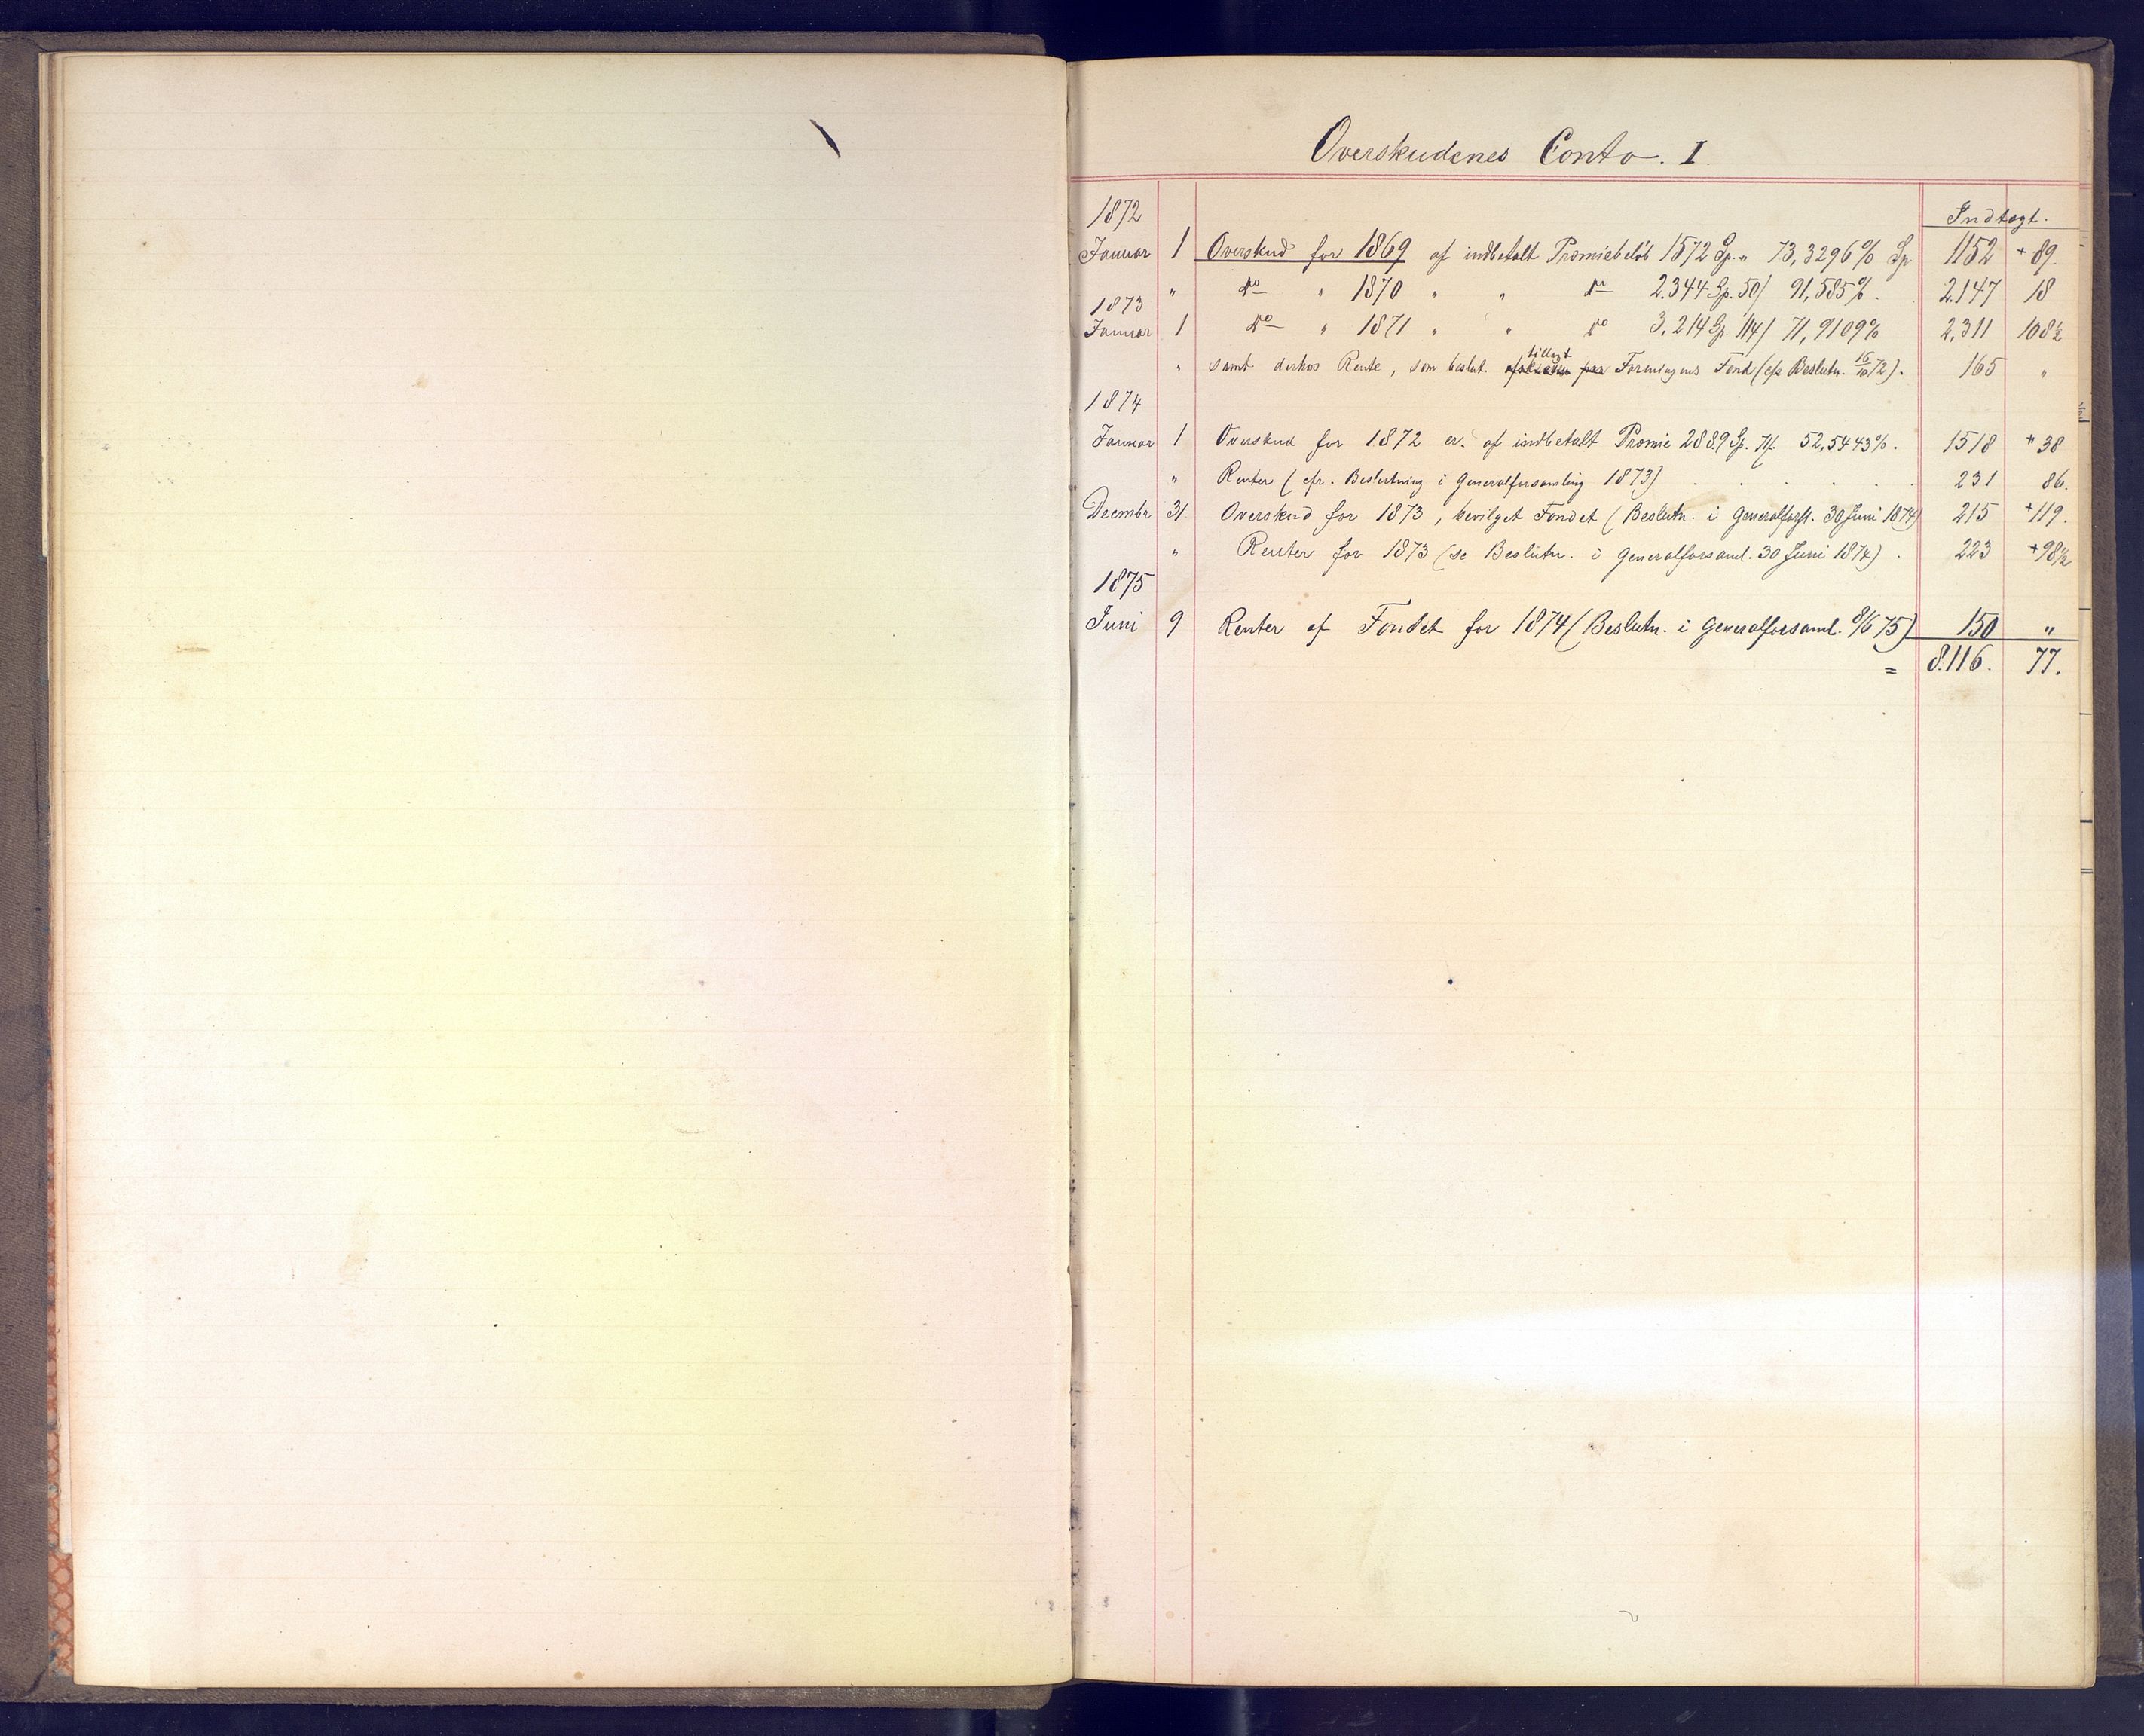 Overskudenes Conto. I.
1872 Indtægt.
Januar 1 Overskud for 1869 af indbetalt Præmiebeløb 1572 Sp. " 73,3296% Sp 1152 + 89.
" do " 1870 " " do 2.344 Sp. 50/ 91,585%. 2.147 18
1873
Januar 1 do " 1871 " " do 3.214 Sp. 114/ 71,9109% 2,311 108½
tillagt
" samt derhos Rente, som beslut. Foreningens Fond (cfr Beslutn. 16/10 72). 165 "
1874
Januar 1 Overskud for 1872 er af indbetalt Præmie 2889 Sp. 71/. 52,5443%. 1518 + 38
" Renter (cfr. Beslutning i Generalforsamling 1873) . . . . . . 231 86.
Decmbr 31 Overskud for 1873, bevilget Fondet (Beslutn. i Generalforsl. 30 Juni 1874) 215 +119.
" Renter for 1873 (se Beslutn. i Generalforsaml. 30 Juni 1874) . 223 +98½
1875
Juni 9 Renter af Fondet for 1874 (Beslutn. i Generalforsaml. 9/6 75) 150 "
= 8.116. 77.